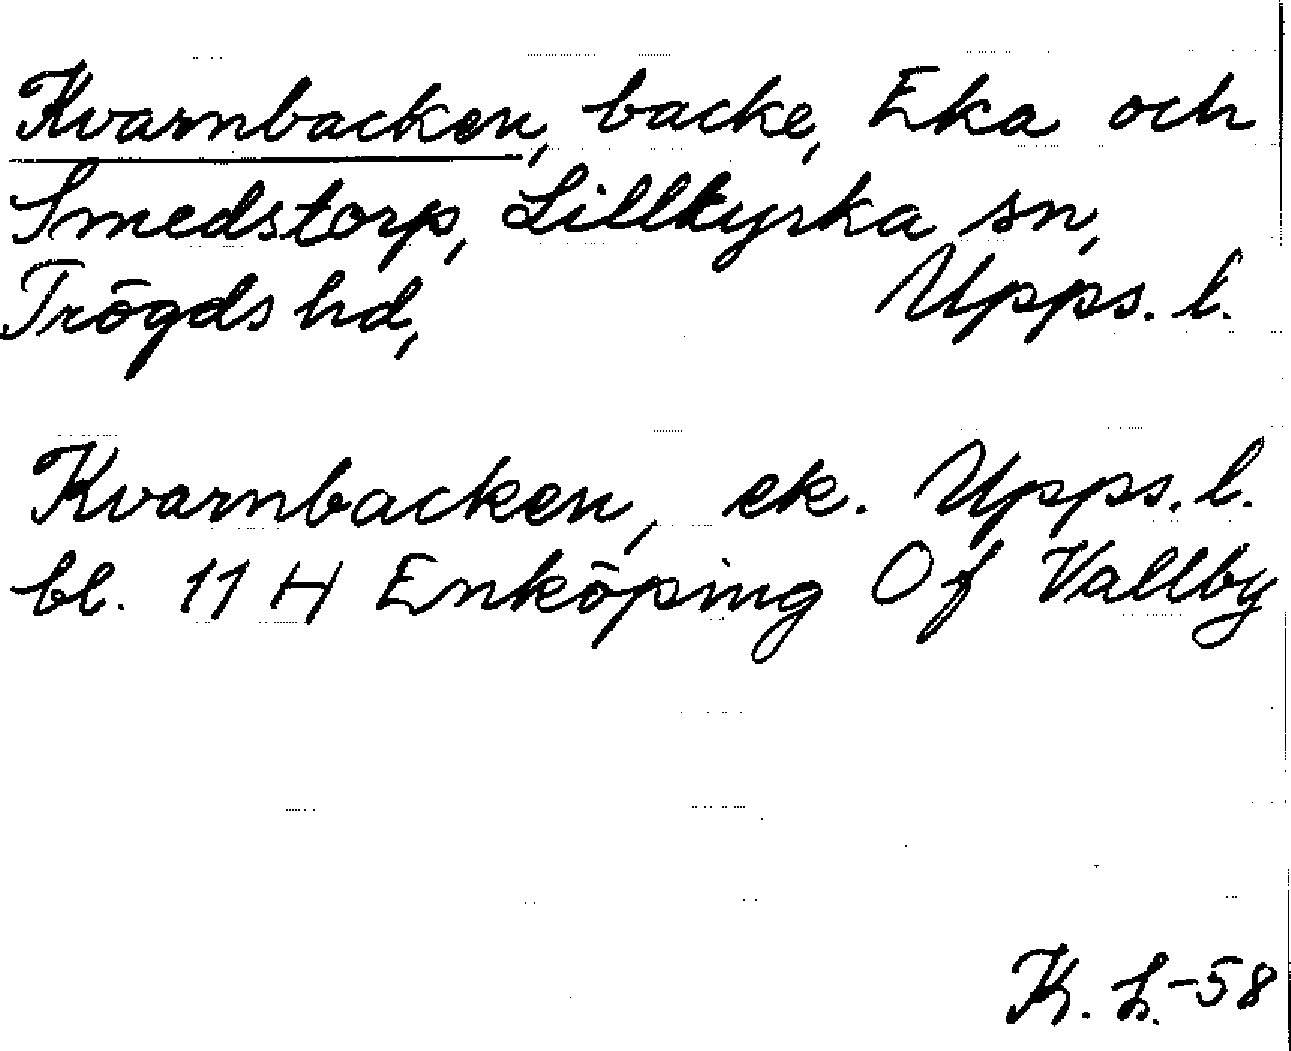 Kvarnbacken, backe, Eka och
Smedstorp, Lillkyrka sn,
Trögds hd, Upps. l.
Kvarnbacken, ek. Upps. l.
bl. 11 H Enköping Of Vallby
K. L. -58